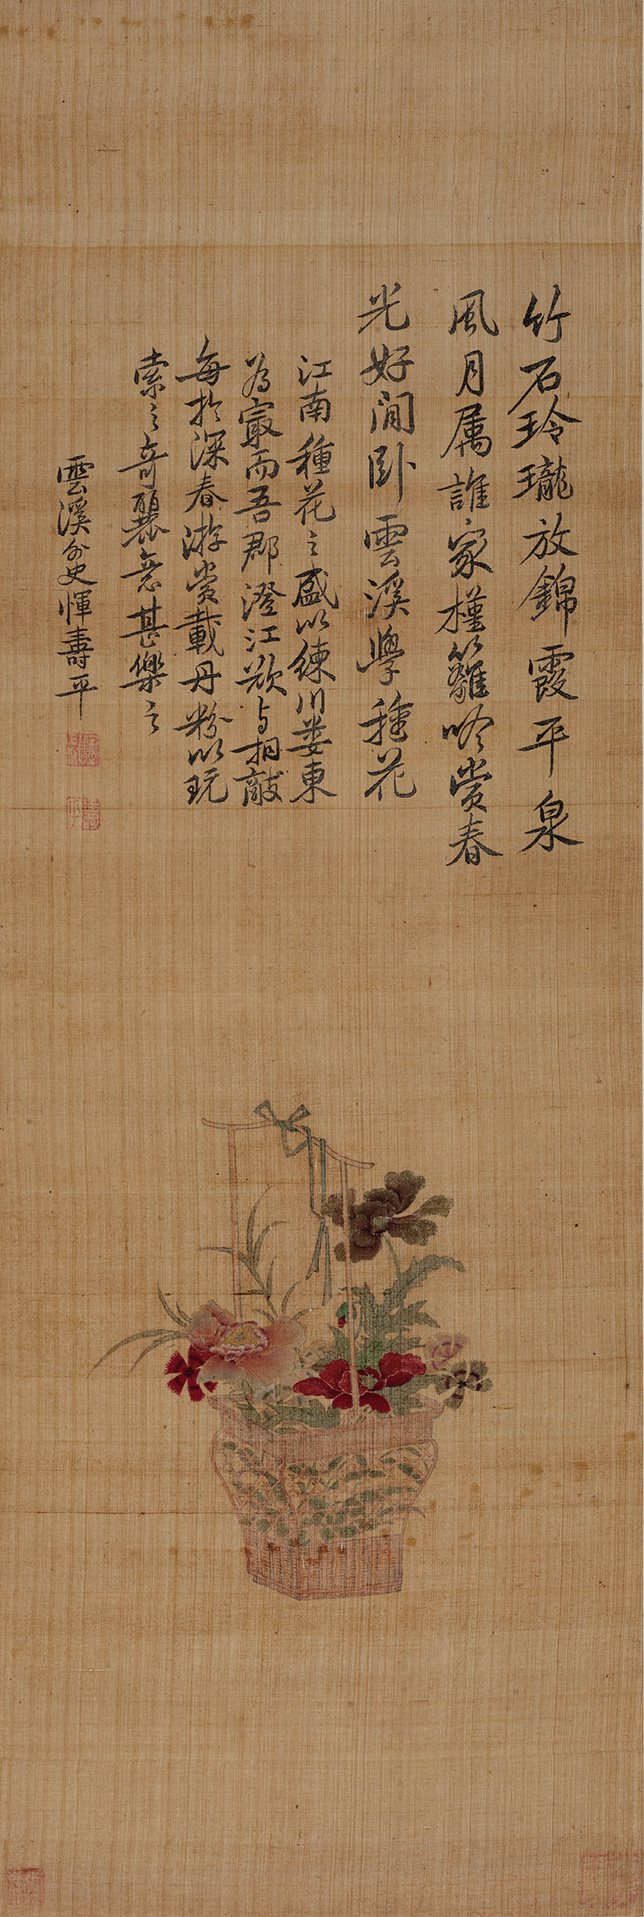 竹石玲瓏放錦霞平泉
風月属誰家槿籬吟賞春
光好閒卧雲溪學種花
江南種花之盛以練川婁東
為寂而吾郡澄江欲与相敵
每於深春游赏載丹粉以玩
索之奇麗意甚樂之
雲溪外史惲壽平